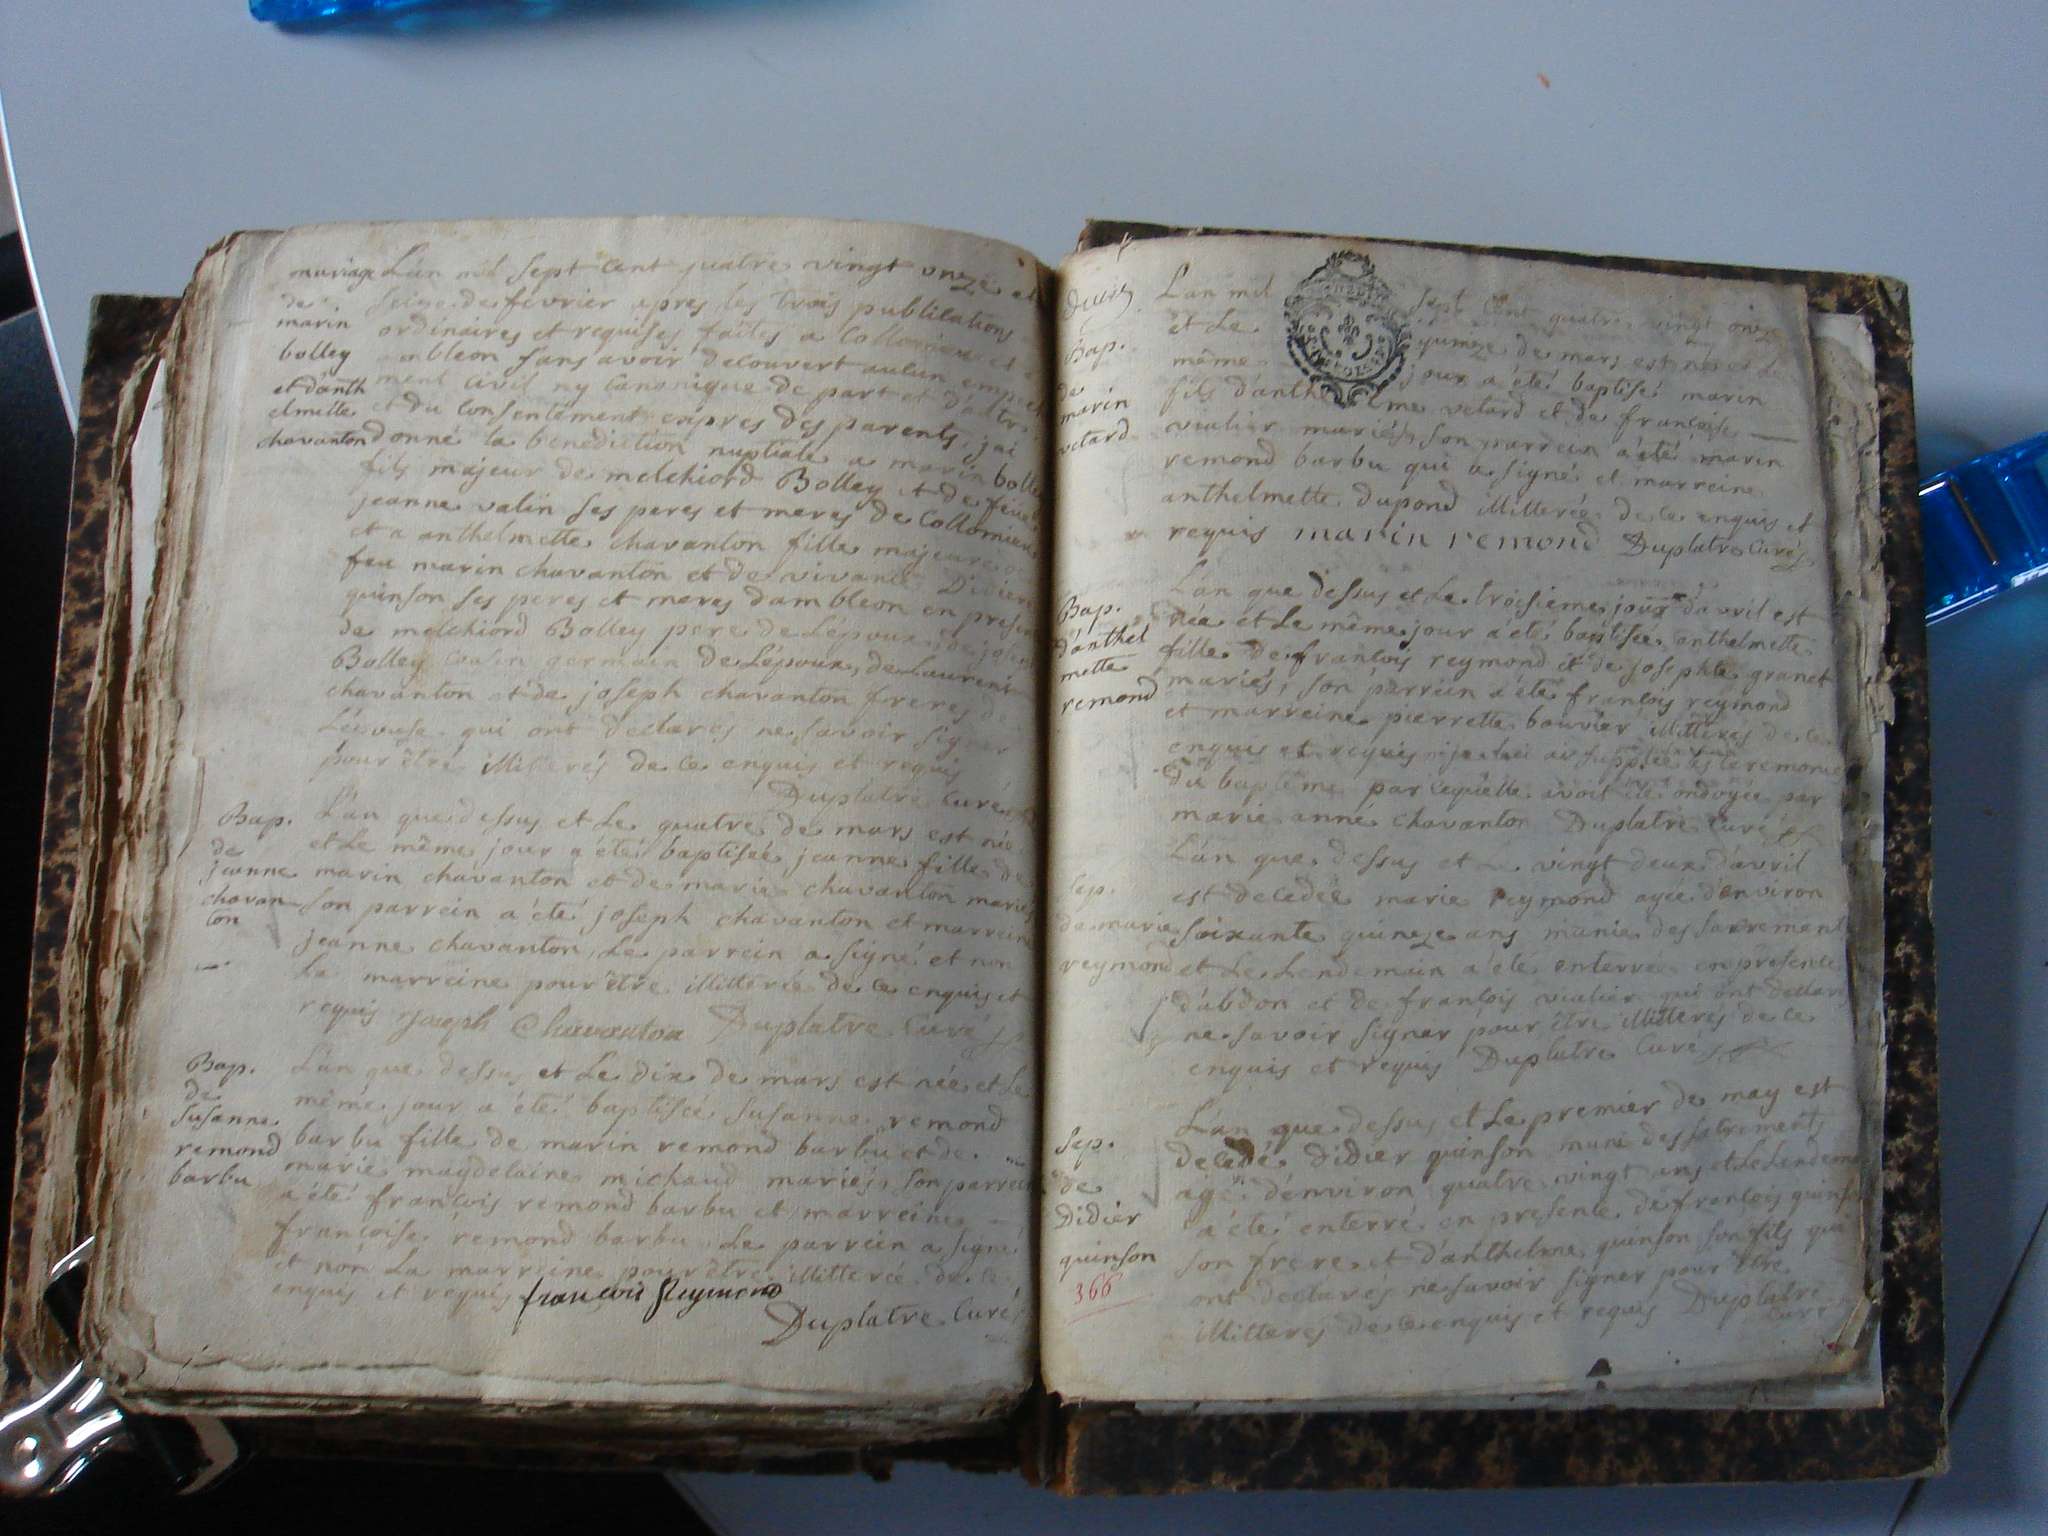 mariage
de
marin
bolley
et d'anth
elmette
chavanton
L'an mil sept cent quatre vingt onze et
seize de février apres les trois publications
ordinaires et requises faites a Collomieux et
ambleon sans avoir decouvert aucun empeche
ment civil ny canonique de part et d'autre
et du consentement exprès des parents, j'ai
donné la benediction nuptiale a marin bolley
fils majeur de melchiord Bolley et de feue
jeanne valin ses peres et meres de Collomieux
et a anthelmette chavanton fille majeure
feu marin chavanton et de vivante Didiere
quinson ses peres et meres d'ambleon en presence
de melchiord Bolley pere de l'époux, de joseph
Bolley cousin germain de L'époux, de Laurent
chavanton et de joseph chavanton freres de
L'épouse qui ont declarés ne savoir signer
pour être illitterés de ce enquis et requis
Duplatre Curé
Bap.
de
jeanne
chavan
ton
L'an que dessus et Le quatre de mars est née
et Le même jour a été baptisée jeanne fille de
marin chavanton et de marie chavanton mariés
son parrein a été joseph chavanton et marreine
jeanne chavanton, Le parrein a signé et non
La marreine pour être illitterée de ce enquis et
requis joseph Chavanton Duplatre Curé
Bap.
de
susanne
remond
barbu
L'an que dessus et Le dix de mars est née et Le
même jour a été baptisée susanne remond
barbu fille de marin remond barbu et de
marie magdelaine michaud mariés, son parrein
a été françois remond barbu et marreine
françoise remond barbu Le parrein a signé
et non La marreine pour être illitterée de ce
enquis et requis françois Reymond
Duplatre Curé
Bap.
de
marin
vetard
L'an mil sept cent quatre vingt onze
et Le quinze de mars est né et Le
même jour a été baptisé marin
fils d'anthelme vetard et de françoise
vialier mariés, son parrein a été marin
remond barbu qui a signé et marreine
anthelmette dupond illitterée de ce enquis et
requis marin remond Duplatre Curé
Bap.
d'anthel
mette
remond
L'an que dessus et Le troisieme jour d'avril est
née et Le même jour a été baptisée anthelmette
fille de françois reymond et de josephte granet
mariés, son parrein a été françois reymond
et marreine pierrette bouvier illitterés de ce
enquis et requis suppléé les ceremonies
du baptême par Lequelle avoit été ondoyée par
marie anne chavanton Duplatre Curé
Sep.
de marie
reymond
L'an que dessus et Le vingt deux d'avril
est decedée marie reymond agée d'environ
soixante quinze ans munie des sacrements
et Le Lendemain a été enterrée en presence
d'abdon et de françois vialier qui ont declarés
ne savoir signer pour être illitterés de ce
enquis et requis Duplatre Curé
Sep.
de
Didier
quinson
366
L'an que dessus et Le premier de may est
decedé Didier quinson muni des sacrements
agé d'environ quatre vingt ans et Le Lendemain
a été enterré en presence de françois quinson
son frere et d'anthelme quinson son fils qui
ont declarés ne savoir signer pour être
illitterés de ce enquis et requis Duplatre
Curé